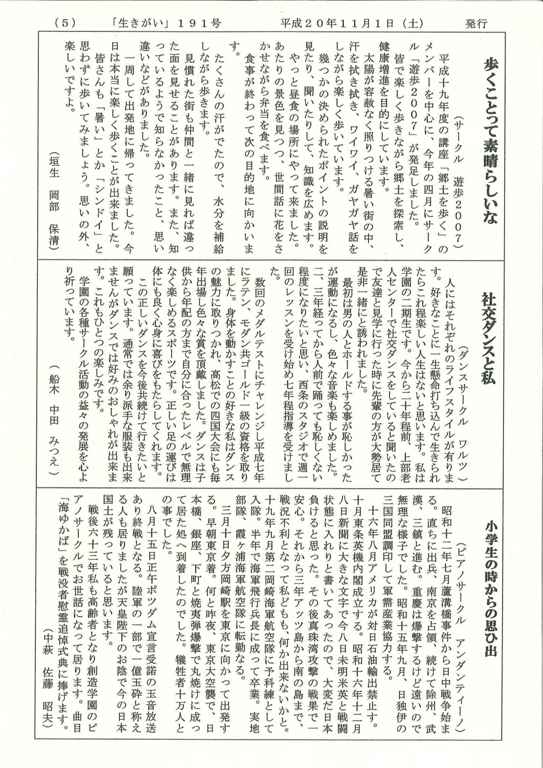 （５）　「生きがい」１９１号　平成２０年１１月１日（土）　発行
歩くことって素晴らしいな
（サークル　遊歩２００７）
平成十九年度の講座「郷土を歩く」の
メンバーを中心に、今年の四月にサーク
ル「遊歩２００７」が発足しました。
皆で楽しく歩きながら郷土を探索し、
健康増進を目的にしています。
太陽が容赦なく照りつける暑い街の中、
汗を拭き拭き、ワイワイ、ガヤガヤ話を
しながら楽しく歩いています。
幾つかの決められたポイントの説明を
見たり、聞いたりして、知識を広めます。
やっと昼食の場所にやって来ました。
あたりの景色を見つつ、世間話に花をさ
かせながら弁当を食べます。
食事が終わって次の目的地に向かいま
す。
たくさんの汗がでたので、水分を補給
しながら歩きます。
見慣れた街も仲間と一緒に見れば違っ
た面を見せることがあります。また、知
っているようで知らなかったこと、思い
違いなどがありました。
一周して出発地に帰ってきました。今
日は本当に楽しく歩くことが出来ました。
皆さんも「暑い」とか「シンドイ」と
思わずに歩いてみましょう。思いの外、
楽しいですよ。
（垣生　岡部　保清）
社交ダンスと私
（ダンスサークル　ワルツ）
人にはそれぞれのライフスタイルが有りま
す。好きなことに一生懸命打ち込んで生きられ
たらこれ程楽しい人生はないと思います。私は
学園の二期生です。今から二十年程前、上部老
人センターで社交ダンスをしていると聞いたの
で友達と見学に行った時に先輩の方が大勢居て
是非一緒にと誘われました。
最初は男の人とホールドする事が恥しかった
が運動になるし、色々な音楽も楽しめました。
二、三年経ってから人前で踊っても恥しくない
程度になりたいと思い、西条のスタジオで週一
回のレッスンを受け始め七年程指導を受けまし
た。
数回のメダルテストにチャレンジし平成七年
にラテン、モダン共ゴールド一級の資格を取り
ました。身体を動かすことの好きな私はダンス
の魅力に取りつかれ、高松での四国大会にも毎
年出場し色々な賞を頂戴しました。ダンスは子
供から年配の方まで自分に合ったレベルで無理
なく楽しめるスポーツです。正しい足の運びは
体にも良く心身に喜びをもたらしてくれます。
この正しいダンスを今後共続けて行きたいと
願っています。通常では余り派手な服装も出来
ませんがダンスでは好みのおしゃれが出来ま
す。これもひとつの楽しみです。
学園の各種サークル活動の益々の発展を心よ
り祈っています。
（船木　中田　みつえ）
小学生の時からの思ひ出
（ピアノサークル　アンダンティーノ）
昭和十二年七月蘆溝橋事件から日中戦争始ま
る。直ちに出兵、南京を占領、続けて除州、武
漢、三鎮と進む、重慶は爆撃するけど遠いので
無理な様子でした。昭和十五年九月、日独伊の
三国同盟調印して軍需産業協力する。
十六年八月アメリカが対日石油輸出禁止す。
十月東条英機内閣成立する。昭和十六年十二月
八日新聞に大きな文字で今八日未明米英と戦闘
状態に入れりと書いてあったので、大変だ日本
負けると思った。その後真珠湾攻撃の戦果で一
安心。それから三年アッツ島から南の島まで、
戦況不利となって私どももつ何か出来ないかと。
十九年九月第二岡崎海軍航空隊に予科練として
入隊。半年で海軍飛行兵長に成って卒業。実地
部隊、霞ヶ浦海軍航空隊に転勤なる。
三月十日夕方岡崎駅を東京に向かって出発す
る。早朝東京着。何と昨夜、東京大空襲で、日
本橋、銀座、下町と焼夷弾爆撃で丸焼けに成っ
て居た処へ到着したのでした。犠牲者十万人と
の事でした。
八月十五日正午ポツダム宣言受諾の玉音放送
あり終戦となる。陸軍の一部で一億玉砕と称え
る人も居りましたが天皇陛下のお陰で今の日本
国土が残っていると思います。
戦後六十三年私も高齢者となり創造学園のピ
アノサークルでお世話になって居ります。曲目
「海ゆかば」を戦没者慰霊追悼式典に捧げます。
（中萩　佐藤　昭夫）